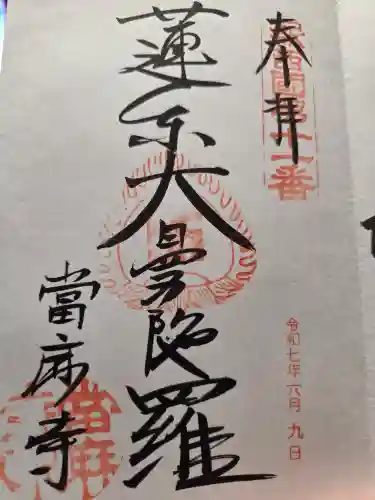 奉拝
新西国第十一番
蓮糸大曼陀羅
令和七年六月九日
當麻寺
當麻